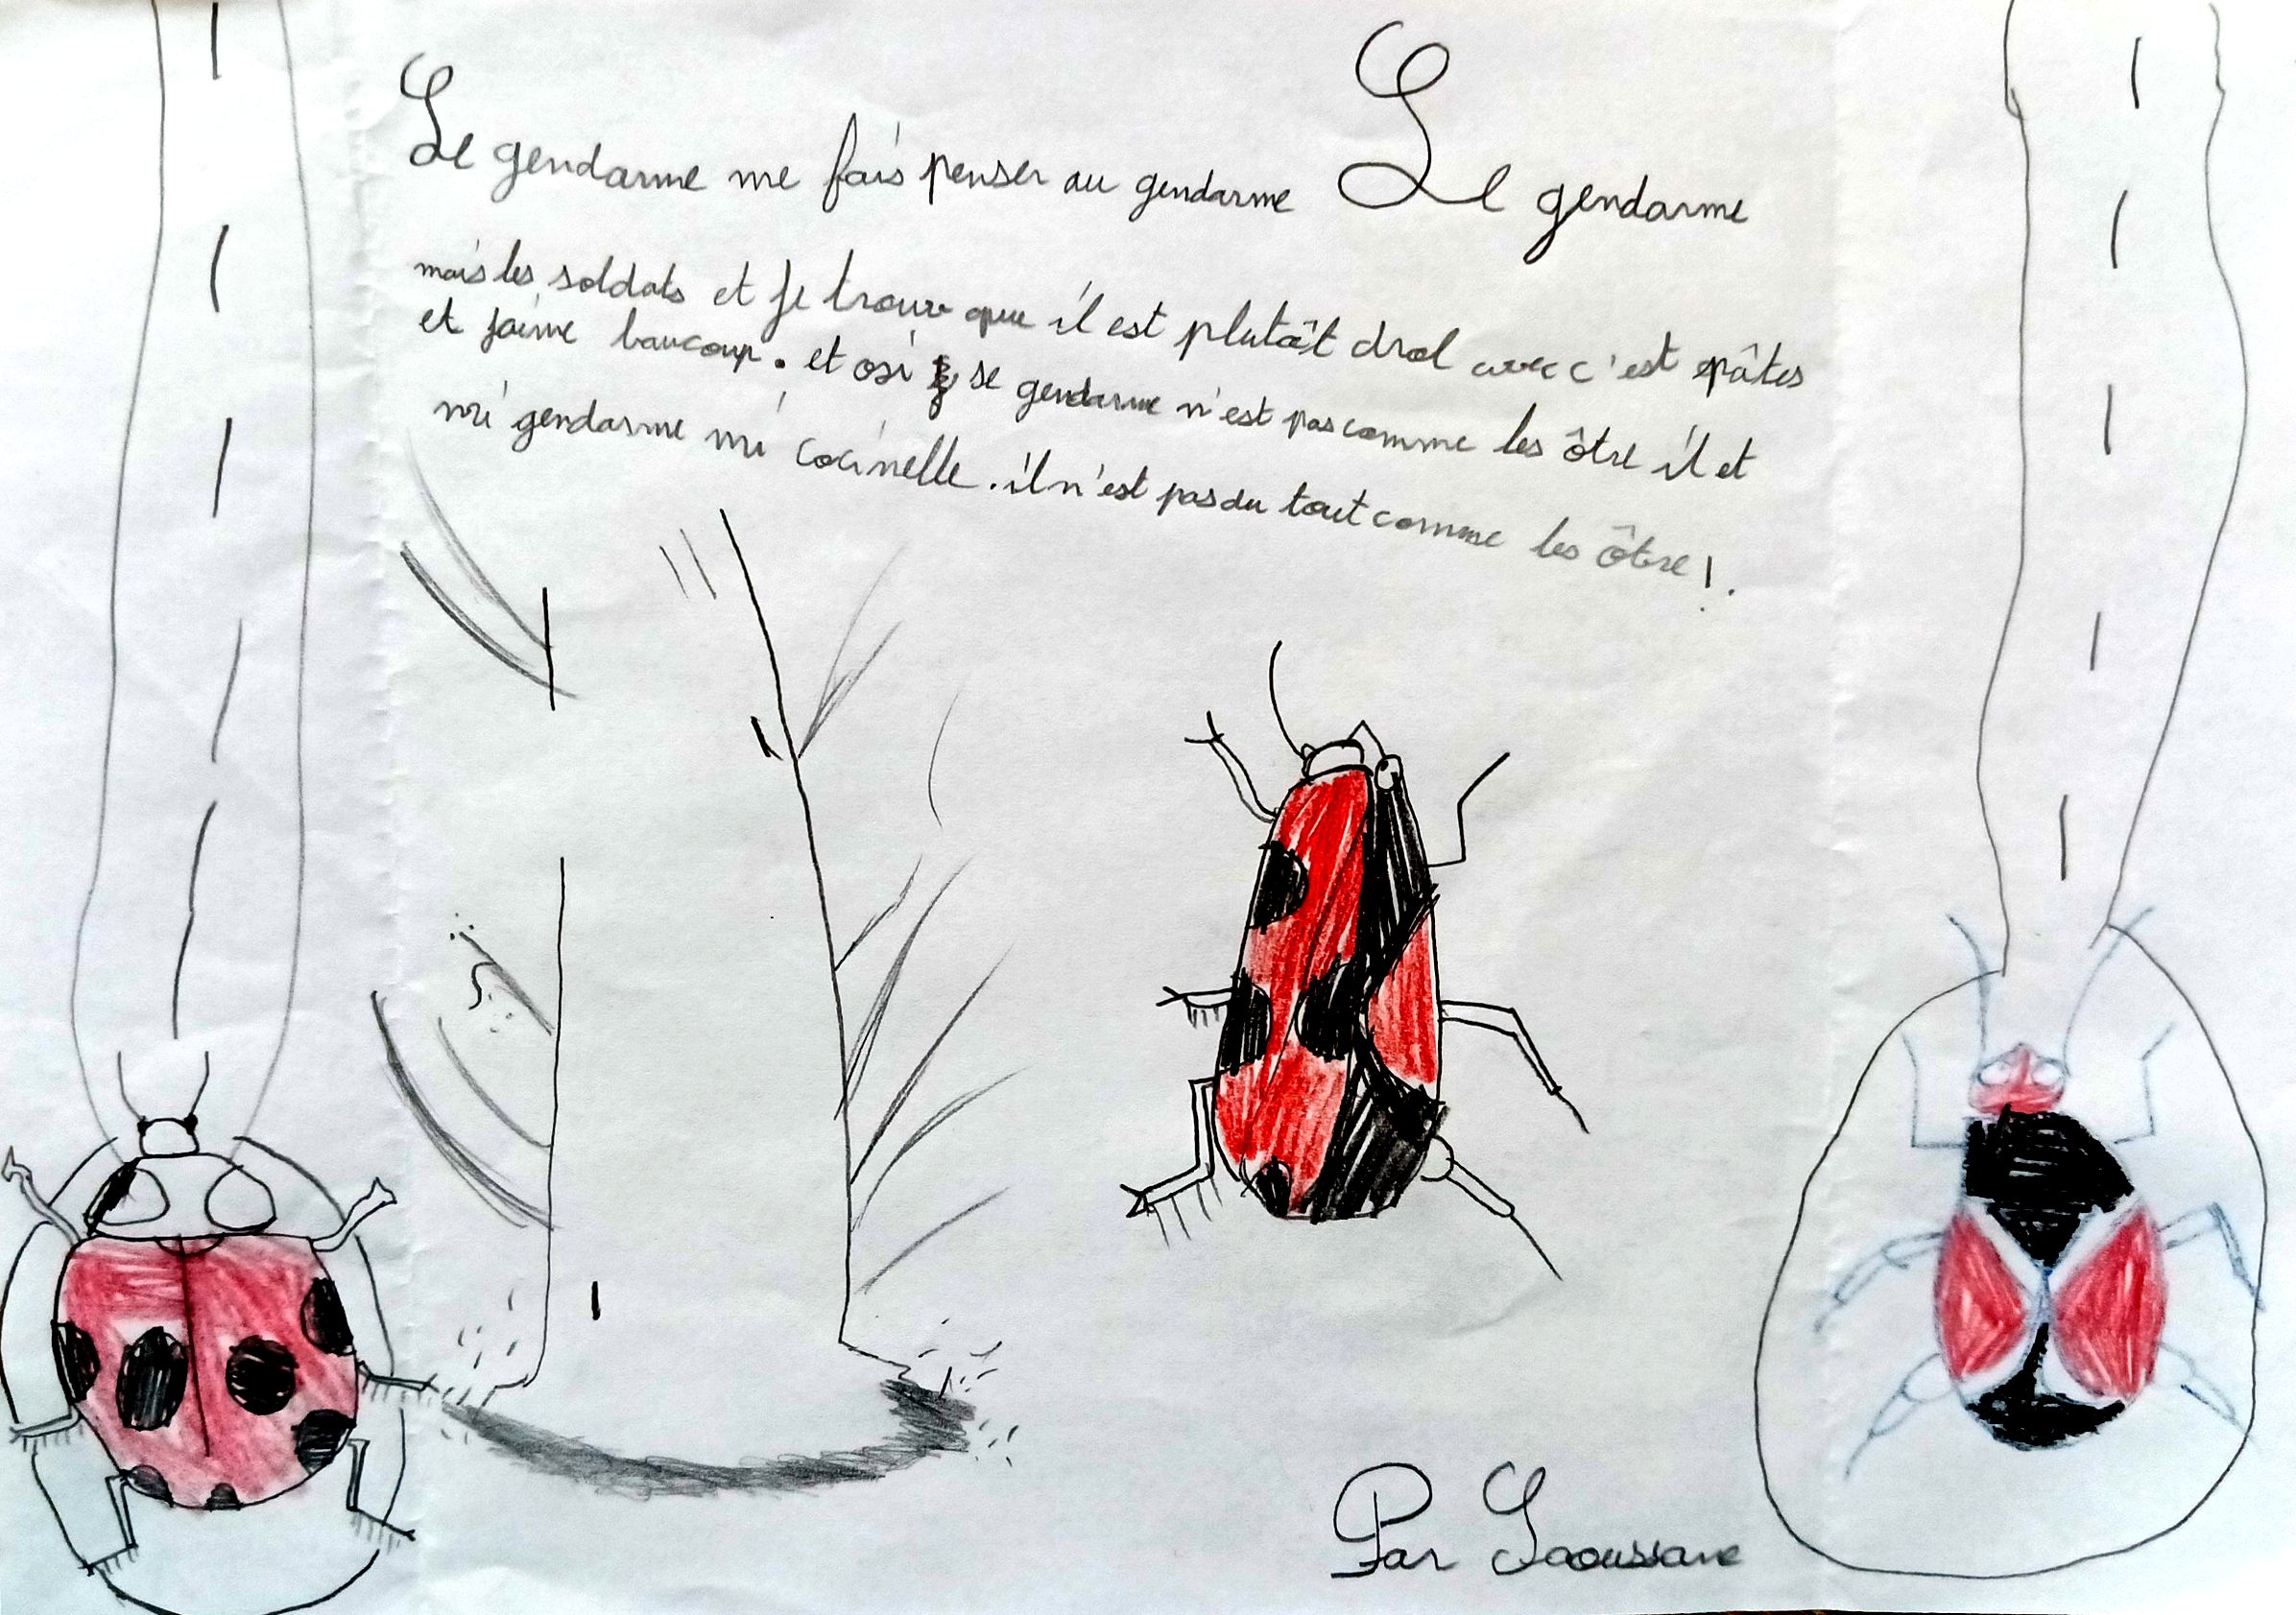 Le gendarme
Le gendarme me fais penser au gendarme
mais les soldats et je trouve que il est plutôt drol avec c'est pâtes
et jaime baucoup. et osi se gendarme n'est pas comme les ôtre il et
mi gendarme mi cocinelle. il n'est pas du tout comme les ôtre !.
Par Saoussane